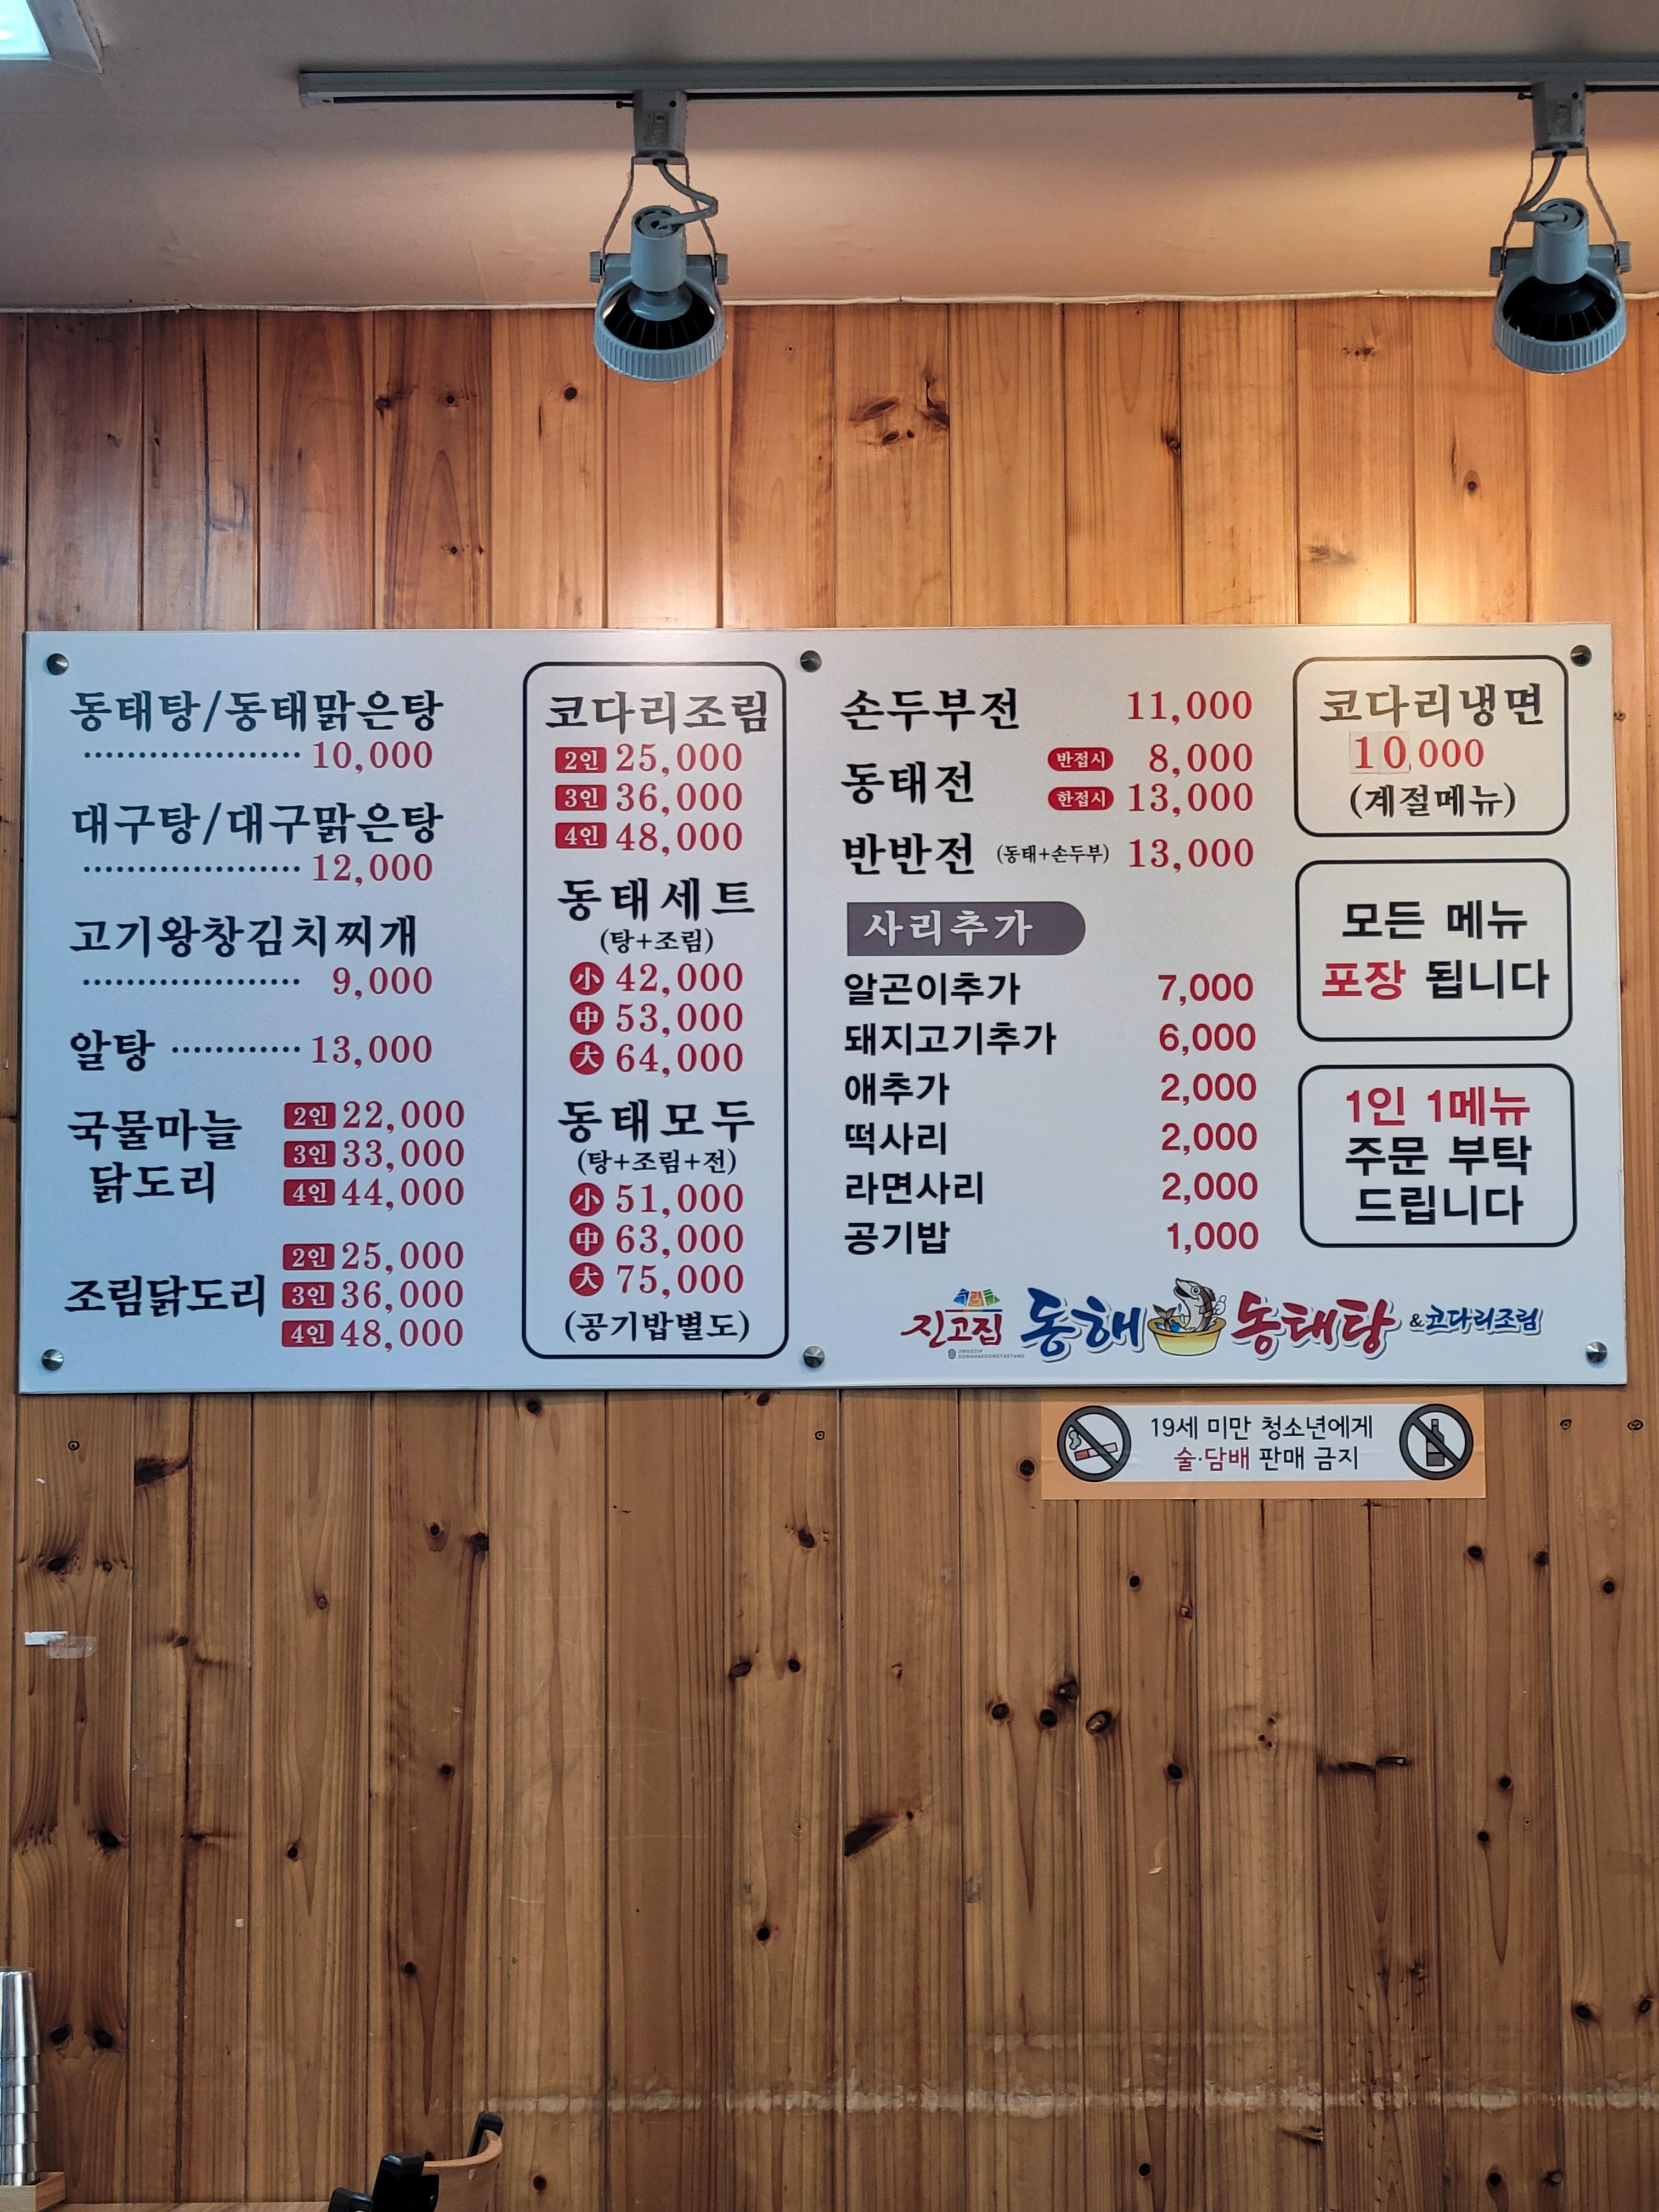 동태탕/동태맑은탕
10,000
대구탕/대구맑은탕
12,000
고기왕창김치찌개
9,000
알탕 13,000
국물마늘
닭도리
2인 22,000
3인 33,000
4인 44,000
조림닭도리
2인 25,000
3인 36,000
4인 48,000
코다리조림
2인 25,000
3인 36,000
4인 48,000
동태세트
(탕+조림)
小 42,000
中 53,000
大 64,000
동태모두
(탕+조림+전)
小 51,000
中 63,000
大 75,000
(공기밥별도)
손두부전 11,000
동태전
반접시 8,000
한접시 13,000
반반전 (동태+손두부) 13,000
사리추가
알곤이추가 7,000
돼지고기추가 6,000
애추가 2,000
떡사리 2,000
라면사리 2,000
공기밥 1,000
코다리냉면
10,000
(계절메뉴)
모든 메뉴
포장 됩니다
1인 1메뉴
주문 부탁
드립니다
진고집 동해 동태탕 &코다리조림
19세 미만 청소년에게
술·담배 판매 금지